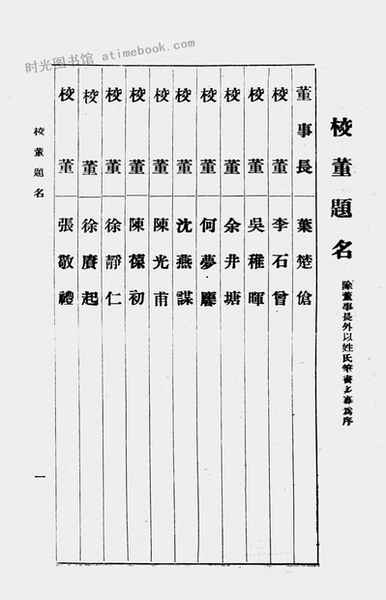 时光图书馆 atimebook.com
校董題名
除董事長外以姓氏筆畫多寡爲序
董事長 葉楚傖
校董 李石曾
校董 吳稚暉
校董 余井塘
校董 何夢麐
校董 沈燕謀
校董 陳光甫
校董 陳葆初
校董 徐靜仁
校董 徐賡起
校董 張敬禮
校董題名
一